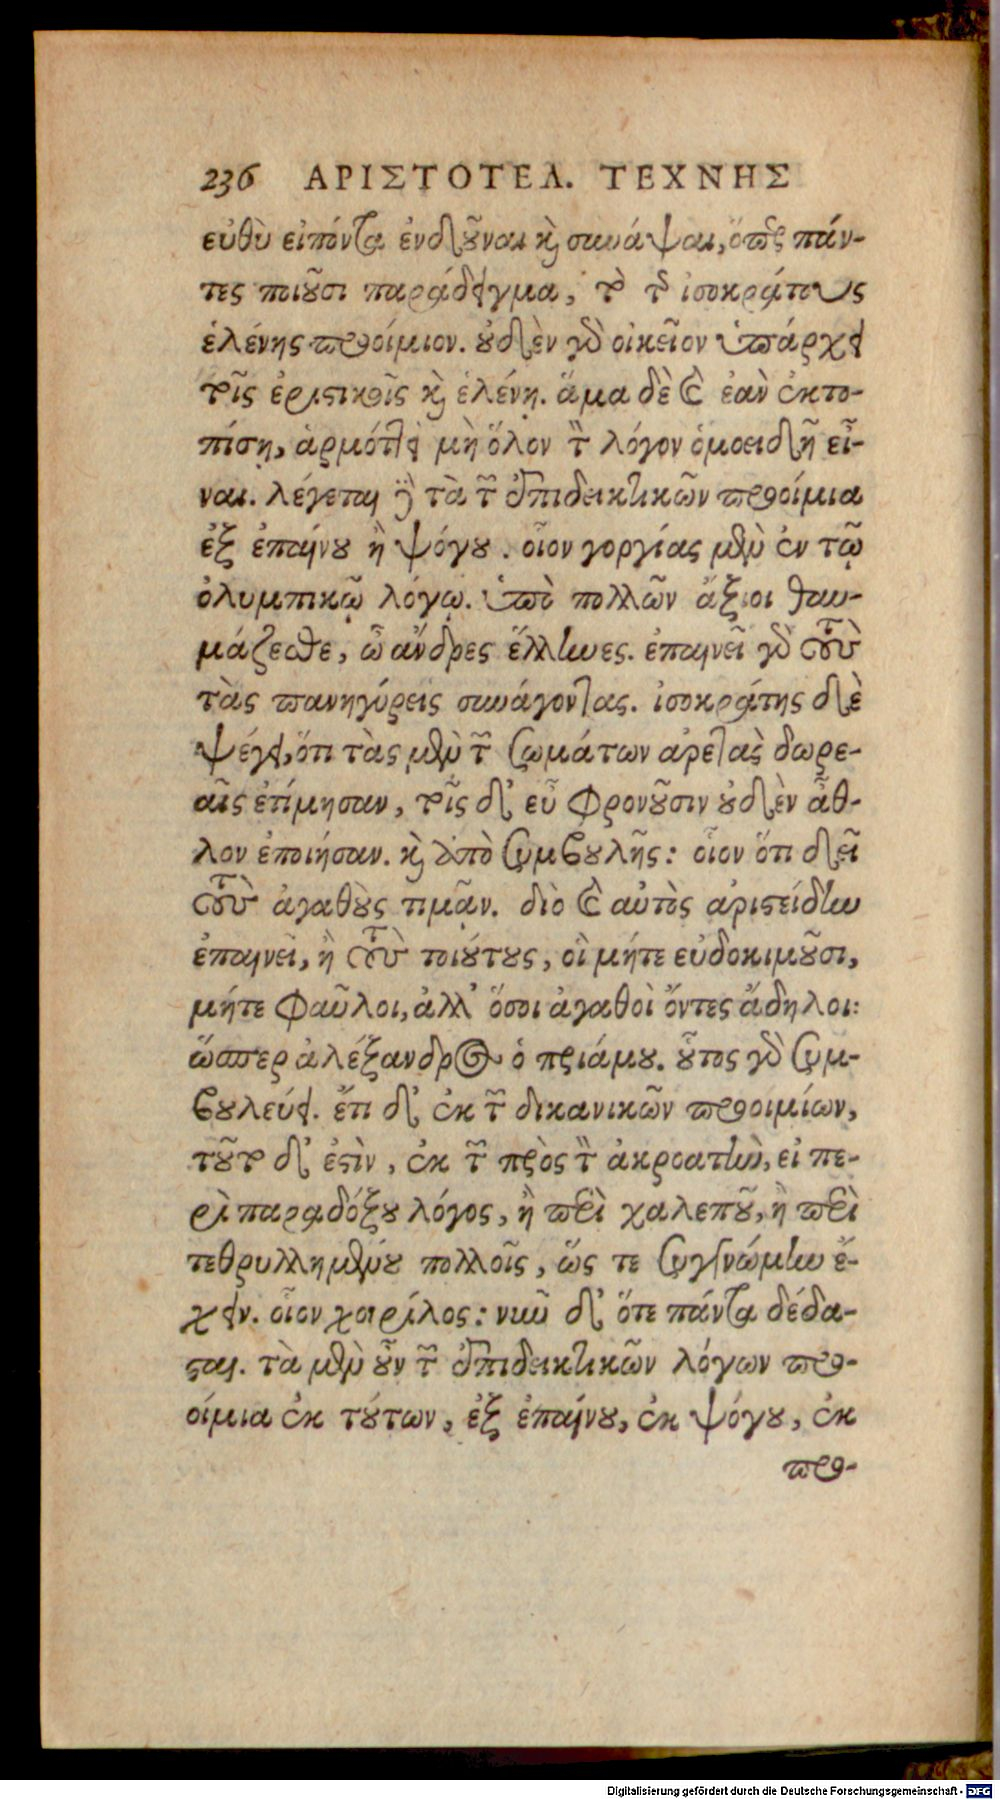 236 ΑΡΙΣΤΟΤΕΛ. ΤΕΧΝΗΣ
εὐθὺ εἰπόντα ἐνδοῦναι καὶ συνάψαι, ὅπερ πάν-
τες ποιοῦσι παράδειγμα, τὸ τοῦ ἰσοκράτους
ἑλένης προοίμιον. οὐδὲν γὰρ οἰκεῖον ὑπάρχει
τοῖς ἐριστικοῖς καὶ ἑλένῃ. ἅμα δὲ καὶ ἐὰν ἐκτο-
πίσῃ, ἁρμόττει μὴ ὅλον τὸν λόγον ὁμοειδῆ εἶ-
ναι. λέγεται δὲ τὰ τῶν ἐπιδεικτικῶν προοίμια
ἐξ ἐπαίνου ἢ ψόγου. οἷον γοργίας μὲν ἐν τῷ
ὀλυμπικῷ λόγῳ. ὑπὸ πολλῶν ἄξιοι θαυ-
μάζεσθε, ὦ ἄνδρες ἕλληνες. ἐπαινεῖ γὰρ τοὺς
τὰς πανηγύρεις συνάγοντας. ἰσοκράτης δὲ
ψέγει, ὅτι τὰς μὲν τῶν σωμάτων ἀρετὰς δωρε-
αῖς ἐτίμησαν, τοῖς δ' εὖ φρονοῦσιν οὐδὲν ἆθ-
λον ἐποιήσαν. καὶ ἀπὸ συμβουλῆς: οἷον ὅτι δεῖ
τοὺς ἀγαθοὺς τιμᾷν. διὸ καὶ αὐτὸς ἀριστείδην
ἐπαινεῖ, ἢ τοὺς τοιούτους, οἳ μήτε εὐδοκιμοῦσι,
μήτε φαῦλοι, ἀλλ' ὅσοι ἀγαθοὶ ὄντες ἄδηλοι:
ὥσπερ ἀλέξανδρος ὁ πριάμου. οὗτος γὰρ συμ-
βουλεύει. ἔτι δ' ἐκ τῶν δικανικῶν προοιμίων,
τοῦτο δ' ἐστὶν, ἐκ τῶν πρὸς τὸν ἀκροατὴν, εἰ πε-
ρὶ παραδόξου λόγος, ἢ περὶ χαλεποῦ, ἢ περὶ
τεθρυλλημένου πολλοῖς, ὥς τε συγγνώμην ἔ-
χειν. οἷον χοιρίλος: νῦν δ' ὅτε πάντα δέδα-
σται. τὰ μὲν οὖν τῶν ἐπιδεικτικῶν λόγων προ-
οίμια ἐκ τούτων, ἐξ ἐπαίνου, ἐκ ψόγου, ἐκ
προ-
Digitalisierung gefördert durch die Deutsche Forschungsgemeinschaft - DFG